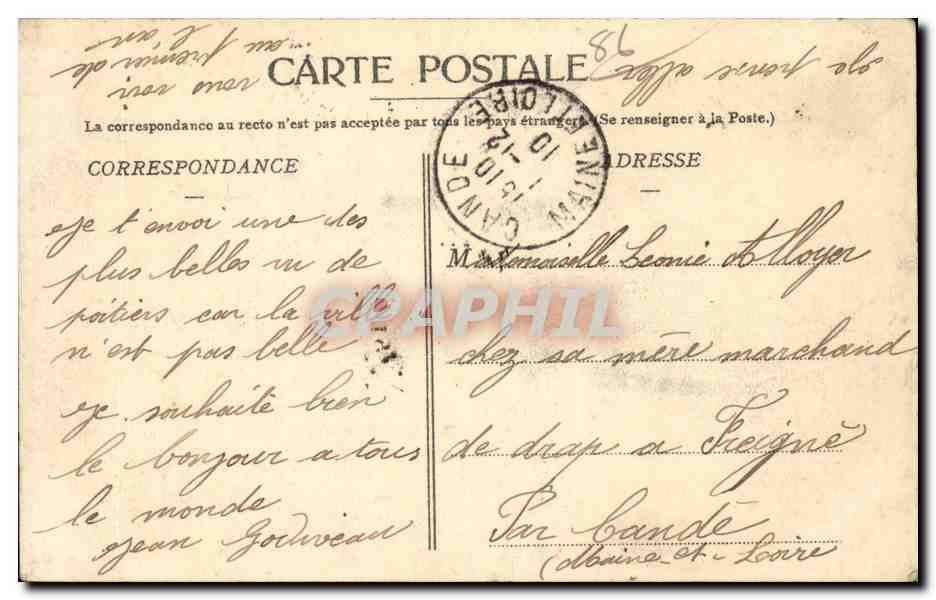 98
Je pense aller
vous voir
au premier de
l'an
CARTE POSTALE
La correspondance au recto n'est pas acceptée par tous les pays étrangers (Se renseigner à la Poste.)
CORRESPONDANCE
ADRESSE
CANDE
MAINE ET LOIRE
10
1-12
10
Je t'envoi une des
plus belles vu de
poitiers car la ville
n'est pas belle
Je souhaite bien
le bonjour a tous
le monde
Jean Godiveau
Mademoiselle Leonie Alloyer
chez sa mère marchand
de drap a Freigné
Par Candé
(Maine-et-Loire
CPAPHIL